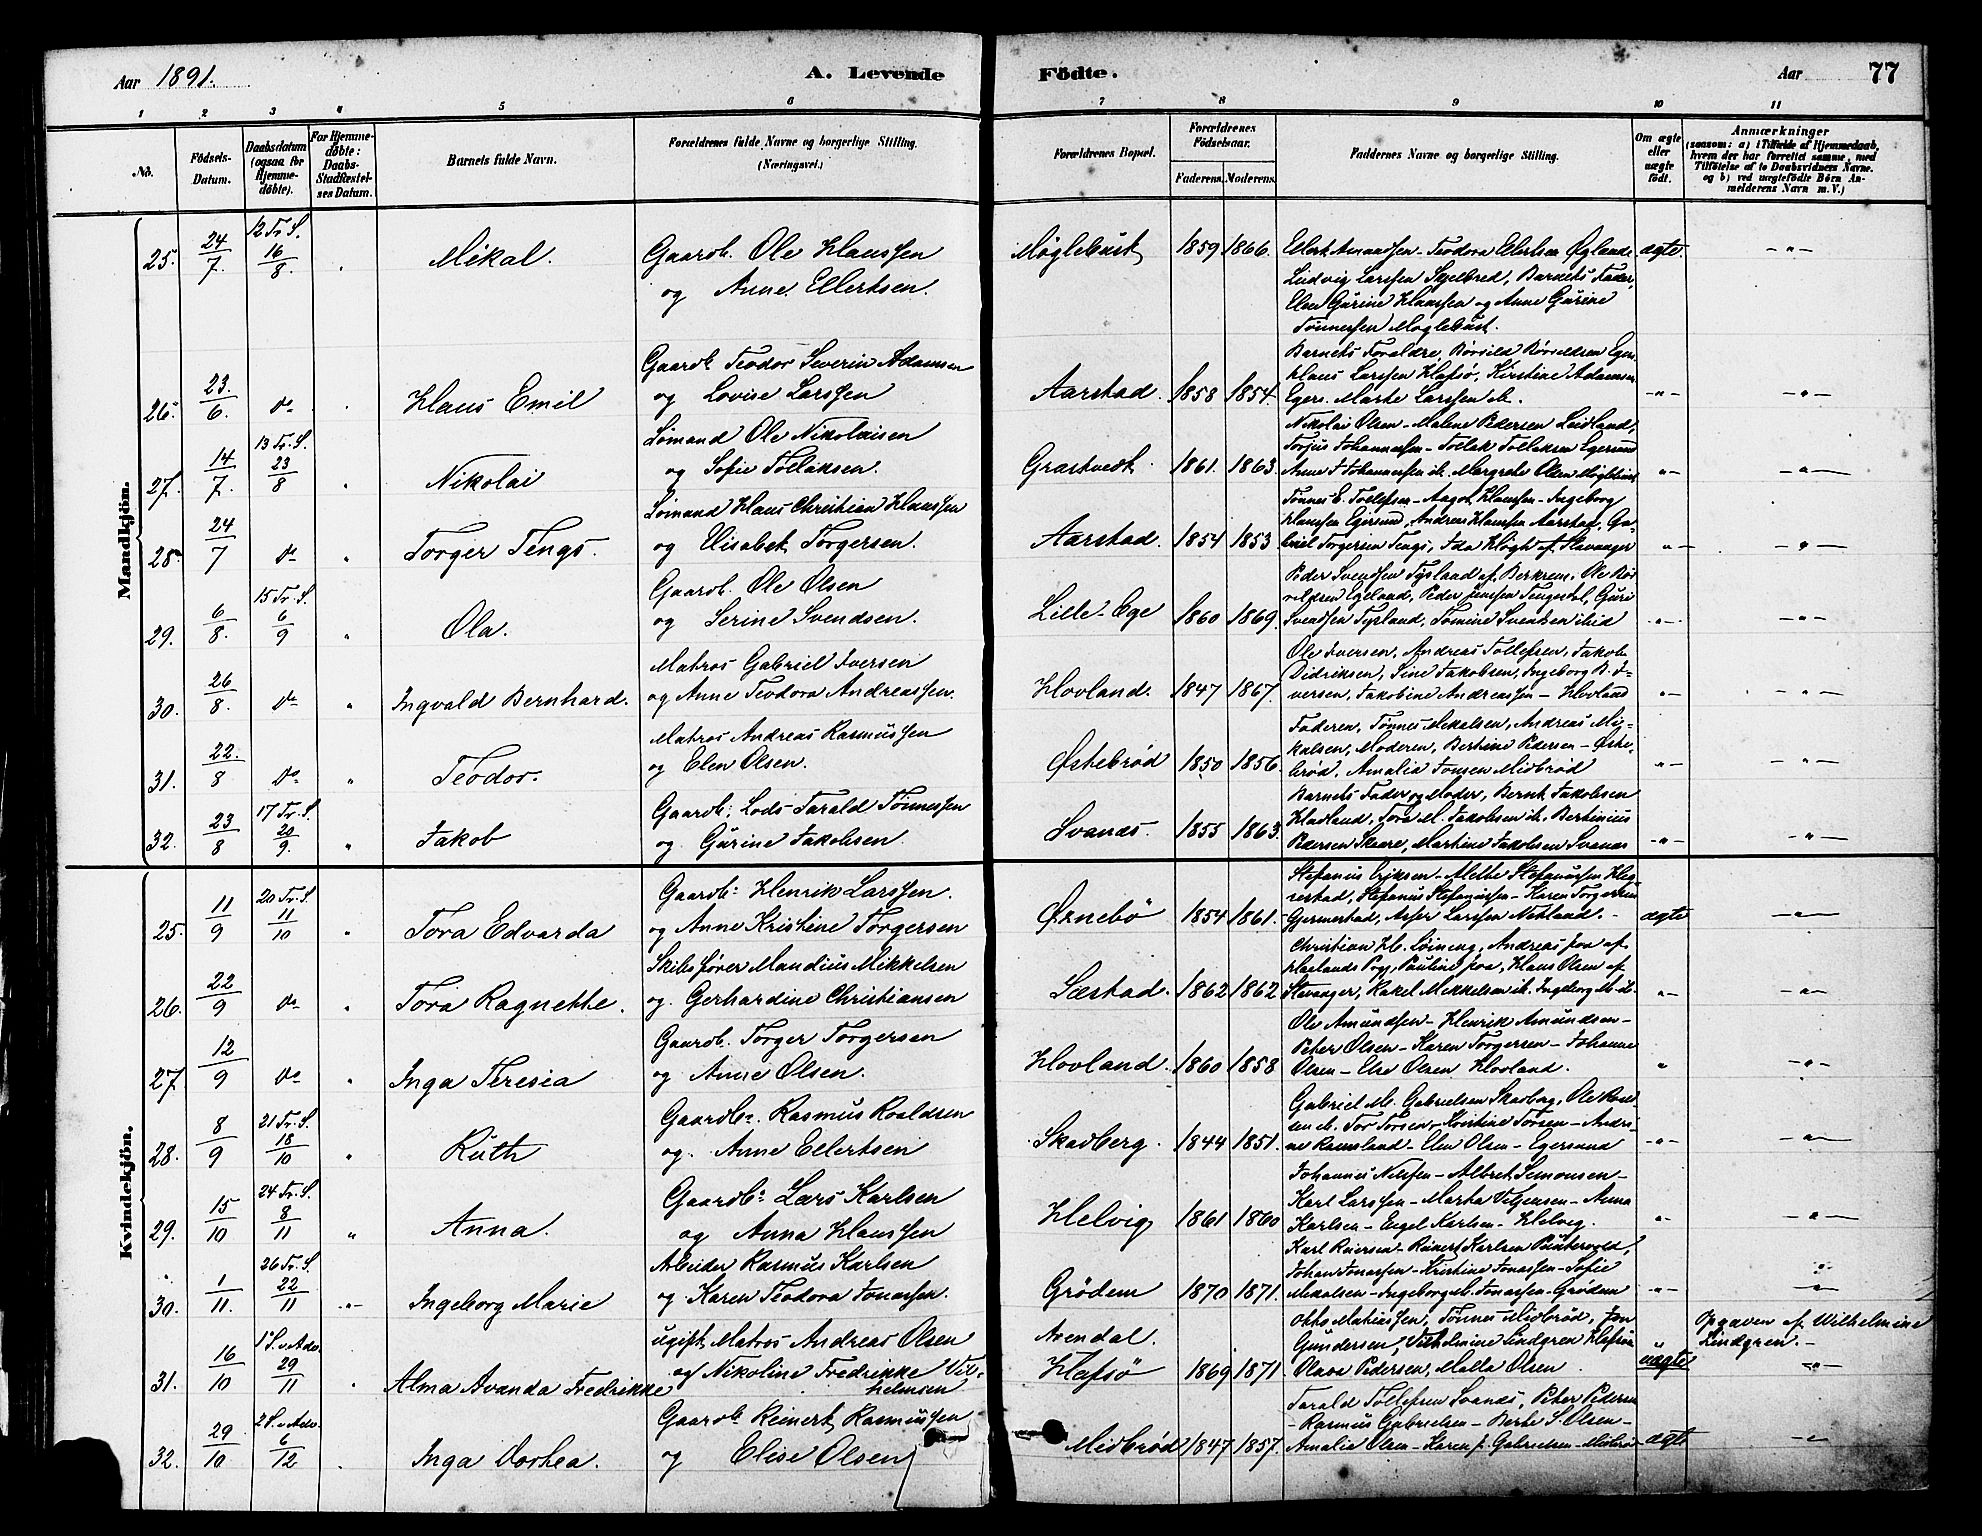 Aar 1891.
A. Levende
Födte.
Aar
77
1 2 3 4 5 6 7 8 9 10 11
No.
Födsels-Datum.
Daabsdatum (ogsaa for Hjemme-döbte).
For Hjemme-döbte: Daabs-Stadfæstelses Datum.
Barnets fulde Navn.
Forældrenes fulde Navne og borgerlige Stilling.
(Næringsvei.)
Forældrenes Bopæl.
Forældrenes Födselsaar.
Faderens. Moderens.
Faddernes Navne og borgerlige Stilling.
Om ægte eller uægte födt.
Anmærkninger
(saasom: a) i Tilfælde af Hjemmedaab, hvem der har forrettet samme, med Tilföielse af to Daabsvidners Navne. og b) ved uægtefödte Börn Anmelderens Navn m. V.)
Mandkjön.
25. 24/7. 12 Tr. S. 16/8. " Mikal. Gaardb. Ole Klaussen
og Anne Ellertsen.
Møglebust 1859 1866.
Ellert Amundsen - Teodora Ellertsen Øglend
Ludvig Larssen Skjelbred, Barnets Fader,
Elen Gurine Klaussen og Anne Gurine
Tønnessen Møglebust.
ægte. - " -
26. 23./6. do . Klaus Emil
Gaardb. Teodor Severin Adamsen
og Lovise Larssen
Aarstad. 1858 1854.
Barnets Forældre,
Klaus Larssen Hafsø, Kirstine Adamsen
Eger. Marte Larssen ib.
- " - - " -
27. 14/7. 13 Tr. S. 23/8 " Nikolai
Sømand Ole Nikolaisen
og Sofie Tollaksen.
Grastvedt. 1861. 1863.
Nikolai Olsen - Malene Pedersen Leidland,
Torjus Johannessen - Tollak Tollaksen Egersund
Anne J. Johannessen ib. Margrete Olsen
" - - " -
28. 24/7 do " Torger Tengs.
Sømand Klaus Christian Klaussen
og Elisabet Torgersen.
Aarstad. 1854 1853
Tønnes E. Tollefsen - Aagot Klaussen - Ingeborg
Klaussen Egersund, Andreas Klaussen Aarstad, Gabriel
Torgersen Tengs, Ida Høgh af Stavanger
" - - " -
29. 6/8. 15 Tr. S. 6/9 " Ola.
Gaardb. Ole Olsen
og Serine Svendsen.
Lille-Ege 1860 1869.
Peder Svendsen Tysland af Berkrem, Ole
Egeland, Peder Jensen Tengesdal, Guri
Svendsen Tysland, Tomine Svendsen ibid
" - - " -
30. 26/8. do " Ingvald Bernhard.
Matros Gabriel Iversen
og Anne Teodora Andreassen.
Hovland. 1847 1867.
Ole Iversen, Andreas Tollefsen, Jakob
Didriksen, Sine Jakobsen, Ingeborg B. I-
versen, Jakobine Andreassen - Hovland
" - - " -
31. 22./8 do " Teodor.
Matros Andreas Rasmussen
og Elen Olsen.
Østebrød 1850 1856.
Faderen, Tønnes Mikalsen, Andreas Mi-
kalsen, Moderen, Bertine Pedersen - Øste-
brød, Amalia Jonsen Midbrød
- " - - " -
32. 23/8 17 Tr. S. 20/9. " Jakob
Gaardb. Lods Tarald Tønnessen
og Gurine Jakobsen.
Svanes. 1855 1863.
Barnets Fader og Moder, Bernt Jakobsen
Hadland, Tora M. Jakobsen ib. Bertinius
Pedersen Skaare, Martine Jakobsen Svanes
- " - - " -
Kvindekjön.
25. 11/9 20 Tr. S. 11/10 " Tora Edvarda
Gaardb. Henrik Larssen.
og Anne Kristine Torgersen
Ørnebö 1854 1861.
Stefanus Eriksen - Mette Stefanussen Heg-
restad, Stefanus Stefanussen - Karen Torgersen
Gjermestad, Asser Larssen Netland.
ægte - " -
26. 22/9 do " Tora Ragnethe.
Skibsfører Mandius Mikkelsen
og Gerhardine Christiansen
Sæstad. 1862 1862
Christian H. Løining, Andreas
Haalands Prgj., Pauline Klaus Olsen af
Stavanger, Rakel Mikkelsen ib. Ingeborg M. ib.
" - - " -
27. 12/9 do " Inga Teresia
Gaardb. Torger Torgersen
og Anne Olsen.
Hovland. 1860 1858
Ole Amundsen - Henrik Amundsen -
Peter Olsen - Karen Torgersen - Johanne
Olsen - Else Olsen Hovland.
" - " -
28. 8/9 21 Tr. S. 18/10 " Ruth
Gaardb. Rasmus Roaldsen
og Anne Ellertsen
Skadberg. 1844 1851.
Gabriel M. Gabrielsen Skadberg, Ole Roald-
sen ib. Tor Torsen - Kristine Torsen - Andri-
ne Ramsland - Elen Olsen - Egersund
- " - - " -
29. 15/10 24 Tr. S. 8/11 " Anna.
Gaardb. Lars Karlsen
og Anna Klaussen
Helvig 1861 1860
Johannes Nilssen - Albret Simonsen -
Karl Larssen - Marta - Anna
Karlsen - Engel Karlsen - Helvig.
" - - " -
30. 1/11. 26 Tr. S. 22/11 - " - Ingeborg Marie
Arbeider Rasmus Karlsen
og Karen Teodora Jonassen.
Grödem 1870 1871.
Karl Reiersen - Reinert Karlsen Puntervold,
Johan Jonassen - Kristine Jonassen - Sofie
Mikalsen - Ingeborg M. Jonassen - Grödem
- " - "
31. 16/10 1 S. v. Adv. 29/11 " Alma Avanda Fredrikke
ugift Matros Andreas Olsen
og Nikoline Fredrikke Vil-
helmsen
Arendal.
Hafsö 1869 1871
Otto Mathiassen, Tønnes Midbrød, Jon
Gundersen, Vilhelmine Lindgren Hafsö
Olava Pedersen, Malla Olsen
" uægte
Opgaven af Wilhelmine
Lindgren.
- " -
32. 29/10 2 S. v. Adv. 6/12 . Inga Dorthea.
Gaardb. Reinert Rasmussen
og Elise Olsen
Midbrød 1847 1857.
Tarald Tollefsen Svanes, Peter Pedersen
- Rasmus Gabrielsen - Berte S. Olsen -
Amalia Olsen - Karen J. Gabrielsen - Midbrød
ægte - " -